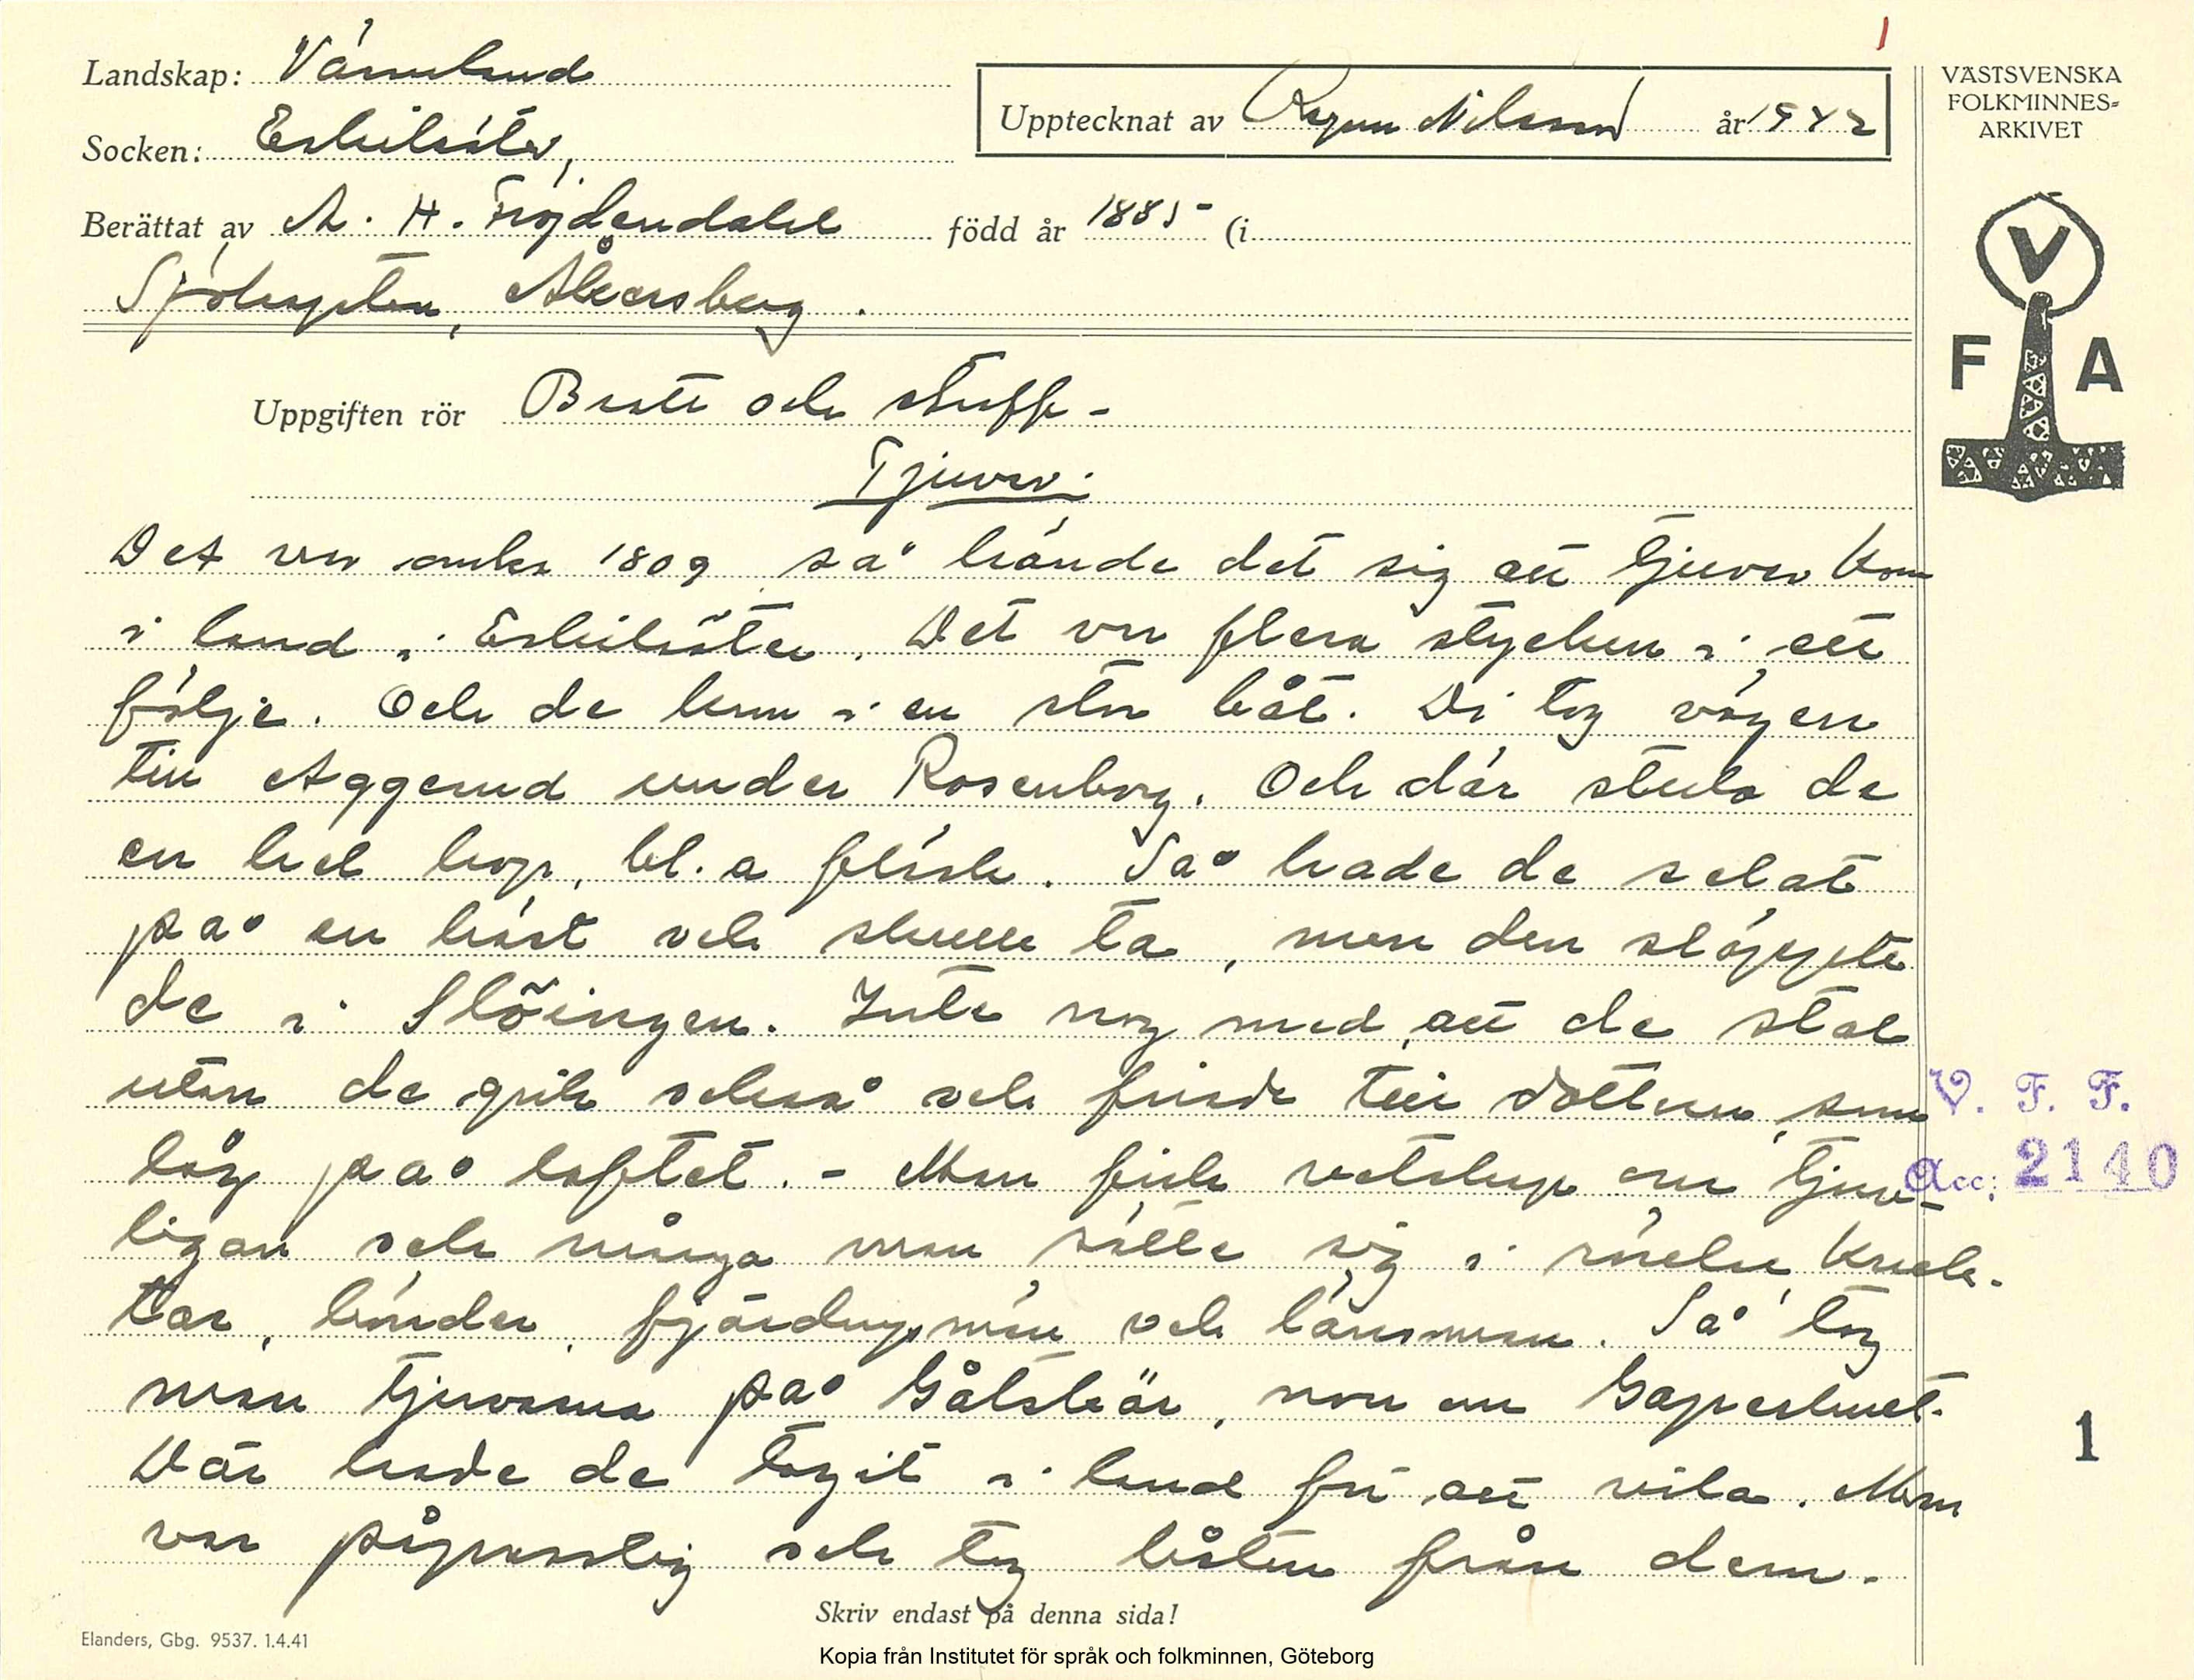 1
Landskap: Värmland
Socken: Eskilsäter,
Upptecknat av Ragnar Nilsson år 1942
VÄSTSVENSKA
FOLKMINNES-
ARKIVET
Berättat av A. H. Fröjdendahl född år 1885 (i
Sjökapten, Åkersberg.
V
F A
Uppgiften rör Brott och straff-
Tjuvar.
Det var omkr 1809 så hände det sig att tjuvar kom
i land i Eskilsäter. Det var flera stycken i ett
följe. Och de kom i en stor båt. Di tog vägen
till Aggerud under Rosenborg. Och där stulo de
en hel hop, bl. a fläsk. Så hade de selat
på en häst och skulle ta, men den släppte
de i Slöingen. Inte nog med att de stal
utan de gick också och friade till dottern, som
V. F. F.
låg på loftet. - Man fick vetskap om tjuv-
Acc: 2140
ligan och många man satte sig i rörelse, knek-
tar, bönder, fjärdingsmän och länsman. Så tog
man tjuvarna på Gåtskär, norr om Gaperhuet.
1
Där hade de tagit i land för att vila. Man
var påpasslig och tog båten från dem.
Skriv endast på denna sida!
Elanders, Gbg. 9537. 1.4.41
Kopia från Institutet för språk och folkminnen, Göteborg